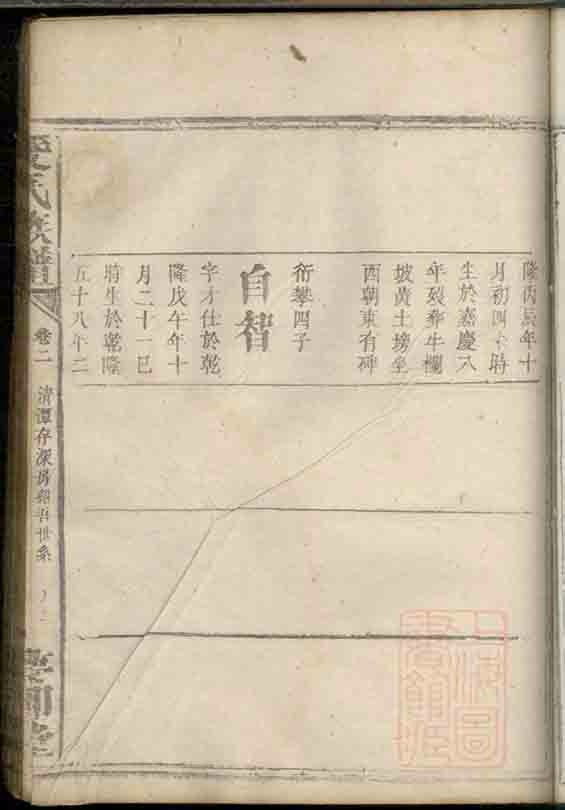 隆丙辰年十
月初四卜時
生於嘉慶八
年歿葬牛欄
坡黃土塝坐
西朝東有碑
衍攀四子
自智
字才仕於乾
隆戊午年十
月二十一巳
時生於乾隆
五十八年二
氏族譜
卷二
清潭存深房 世系
上海圖書館藏